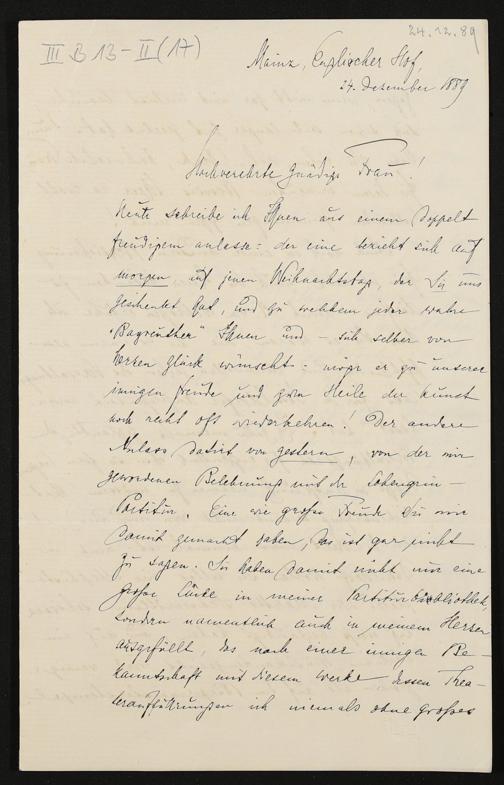 24.12.89
III B 13 – II (17)
Mainz, Englischer Hof,
24. Dezember 1889
Hochverehrte gnädige Frau!
Heute schreibe ich Ihnen aus einem doppelt
freudigem Anlasse: der eine bezieht sich auf
morgen auf jenen Weihnachtstag, der Sie uns
geschenkt hat, und zu welchem jeder wahre
"Bayreuther" Ihnen und – sich selber von
Herzen Glück wünscht: möge er zu unserer
innigen Freude und zum Heile der Kunst
noch recht oft wiederkehren! Der andere
Anlass datirt von gestern, von der mir
gewordenen Belehnung mit der Lohengrin –
Partitur. Eine wie große Freude Sie mir
damit gemacht haben, das ist gar nicht
zu sagen. Sie haben damit nicht nur eine
große Lücke in meiner Partiturbibliothek,
sondern namentlich auch in meinem Herzen
ausgefüllt, das nach einer innigen Be-
kanntschaft mit diesem Werke dessen Thea-
teraufführungen ich niemals ohne großes